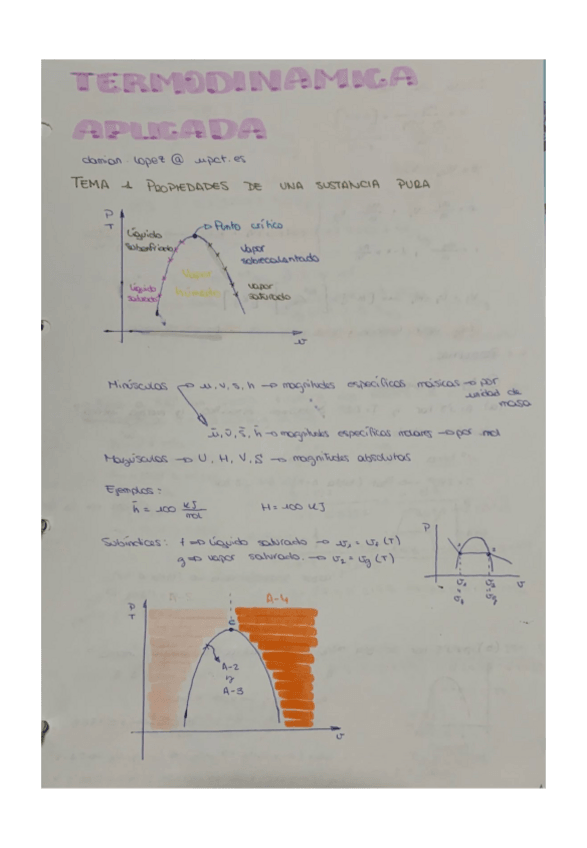 TERMODINAMICA
APLICADA
damian lopez @ upct.es
TEMA 1 PROPIEDADES DE UNA SUSTANCIA PURA
P
T
Punto crítico
Líquido
subenfriado
vapor
sobrecalentado
Vapor
húmedo
líquido
saturado
vapor
saturado
v
Minúsculas → u, v, s, h → magnitudes específicas másicas → por
unidad de
masa
ū, v̄, s̄, h̄ → magnitudes específicas molares → por mol
Mayúsculas → U, H, V, S → magnitudes absolutas
Ejemplos:
h̄ = 100 kJ/mol H = 100 kJ
Subíndices: f ⇒ líquido saturado → v₁ = vf (T)
g ⇒ vapor saturado. → v₂ = vg (T)
P
v
A-4
P
T
C
A-2
y
A-3
v